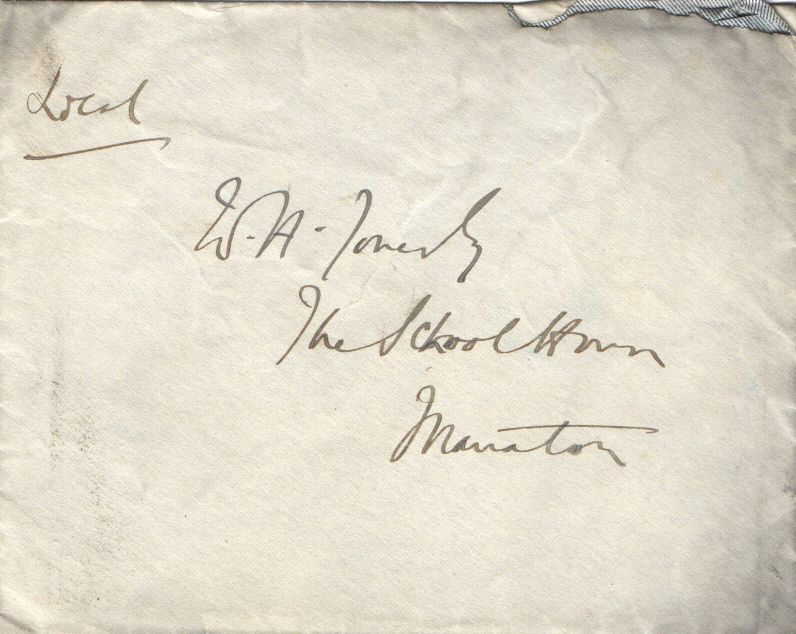 Local
W. H. Jones Esq
The School House
Manaton